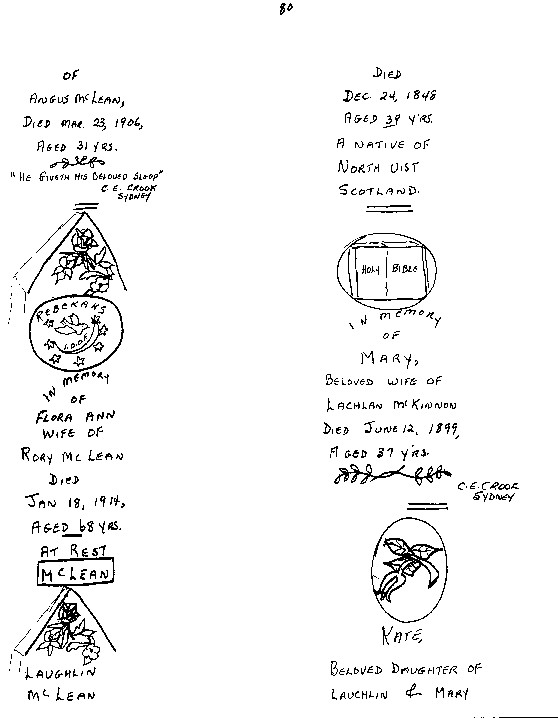 80
OF
ANGUS MCLEAN,
DIED MAR. 23, 1906,
AGED 31 YRS.
"HE GIVETH HIS BELOVED SLEEP"
C. E. CROOK
SYDNEY
REBEKAHS
I.O.O.F.
IN MEMORY
OF
FLORA ANN
WIFE OF
RORY MCLEAN
DIED
JAN 18, 1914,
AGED 68 YRS.
AT REST
MCLEAN
LAUGHLIN
MCLEAN
DIED
DEC. 24, 1848
AGED 39 Y'RS.
A NATIVE OF
NORTH UIST
SCOTLAND.
HOLY BIBLE
IN MEMORY
OF
MARY,
BELOVED WIFE OF
LACHLAN MCKINNON
DIED JUNE 12, 1899,
AGED 37 Y'RS.
C.E. CROOK
SYDNEY
KATE,
BELOVED DAUGHTER OF
LAUCHLIN & MARY